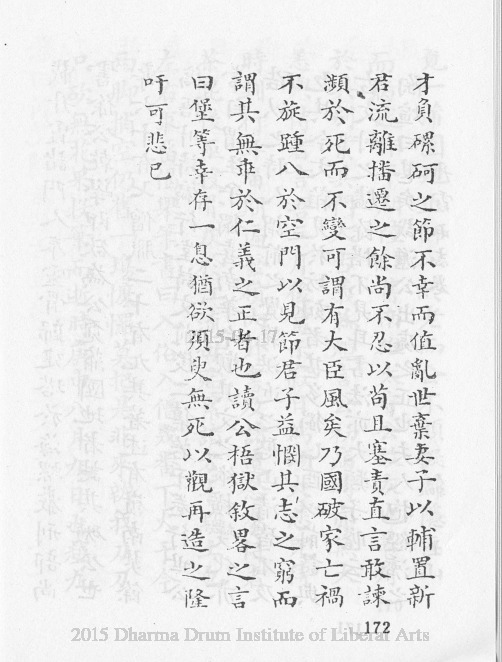 才負磥砢之節不幸而值亂世棄妻子以輔置新
君流離播遷之餘尚不忍以苟且塞責直言敢諫
瀕於死而不變可謂有大臣風矣乃國破家亡禍
不旋踵入於空門以見節君子益憫其志之窮而
謂其無乖於仁義之正者也讀公梧獄敘畧之言
曰堡等幸存一息猶欲須臾無死以觀再造之隆
吁可悲已
172
2015 Dharma Drum Institute of Liberal Arts